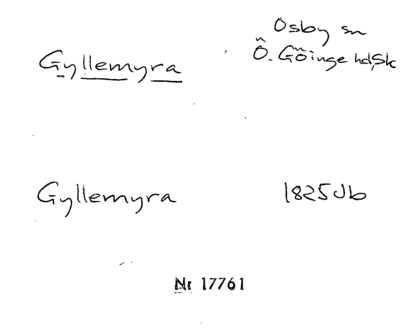 Osby sn
Gyllemyra
Ö. Göinge hd, Sk
Gyllemyra
1825 Jb
Nr 17761